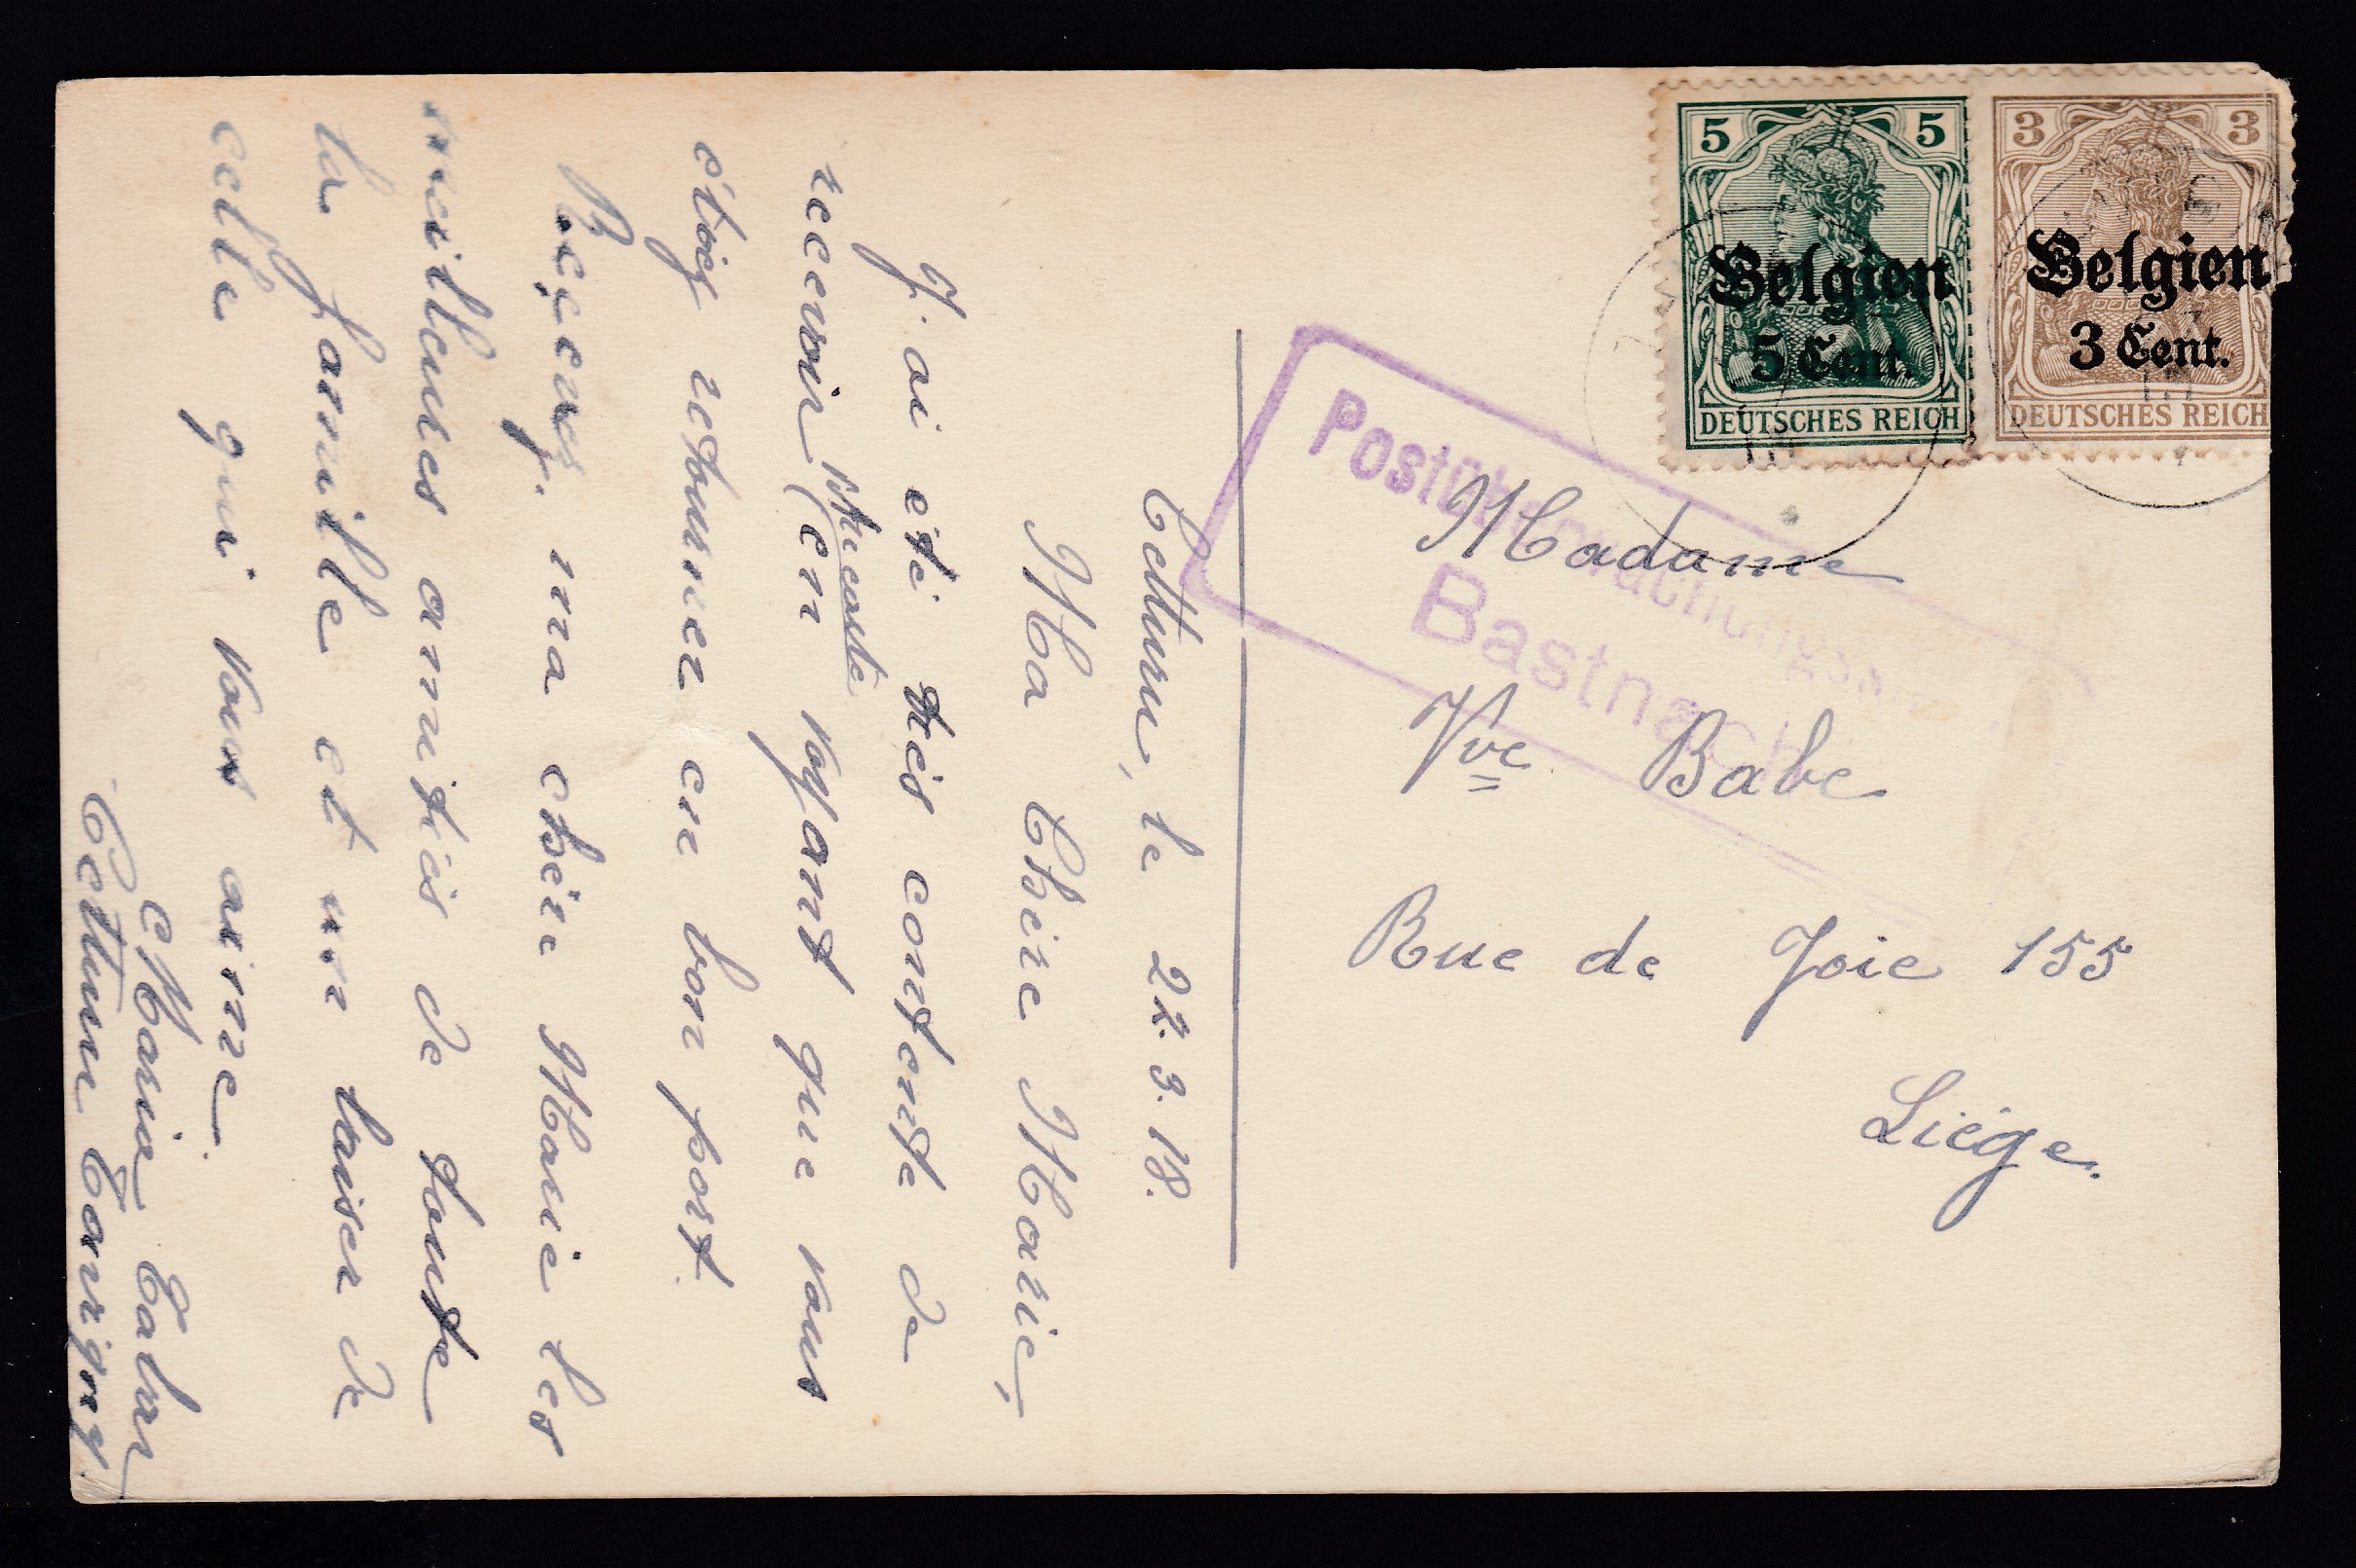 5 5
Belgien
5 Cent.
DEUTSCHES REICH
3 3
Belgien
3 Cent.
DEUTSCHES REICH
Postüberwachungs
Bastnach
Madame
Vve Babe
Rue de Joie 155
Liége.
le 3. 18.
Ma Chère Marie,
J. ai été très contente de
recevoir (en voyant que vous
votre carte
étiez retourner en bon port.
Recevez, ma chère Marie les
meilleures amitiés de toute
la famille et un baiser de
celle qui vous aime.
Maria